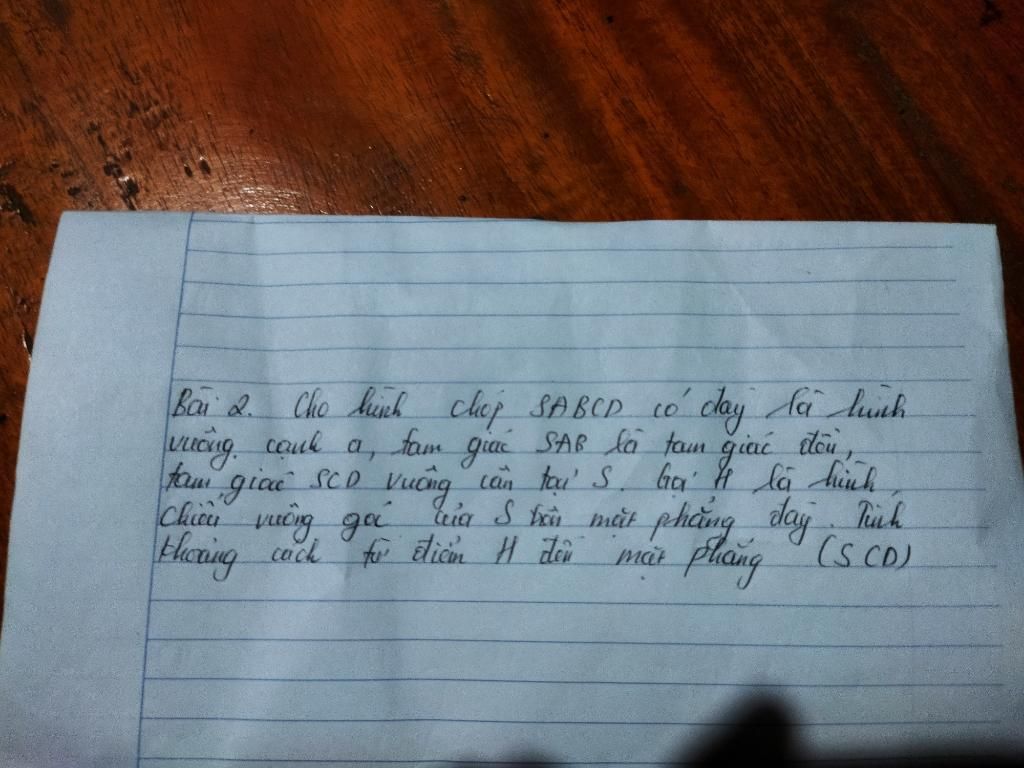 Bài 2. Cho hình chóp SABCD có đáy là hình
vuông cạnh a, tam giác SAB là tam giác đều,
tam giác SCD vuông cân tại S. Gọi H là hình
chiếu vuông góc của S trên mặt phẳng đáy. Tính
khoảng cách từ điểm H đến mặt phẳng (SCD)